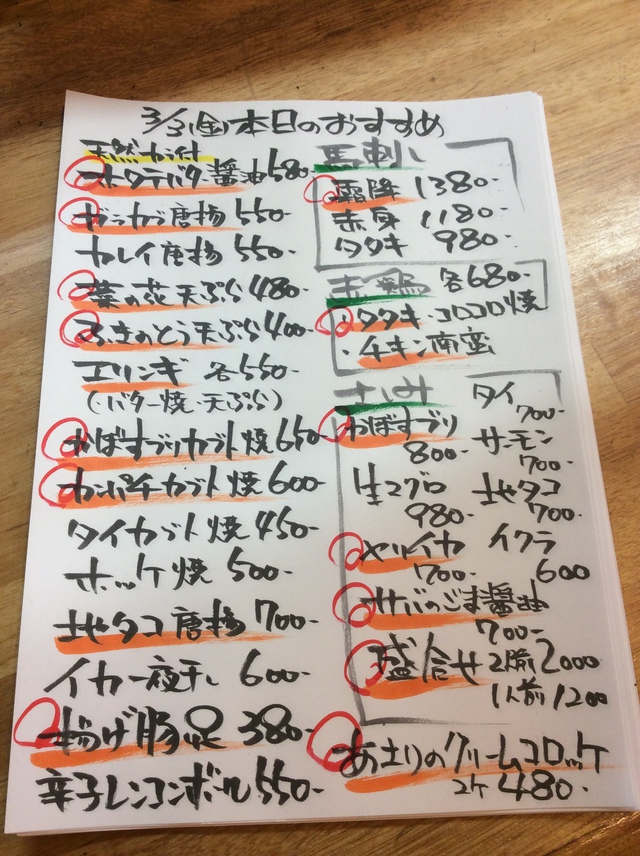 3/3(金)本日のおすすめ
天然カラ付
ホタテバター醤油580-
ガラカブ唐揚550-
カレイ唐揚550-
菜の花天ぷら480-
ふきのとう天ぷら400-
エリンギ 各550-
(バター焼・天ぷら)
かぼすブリカブト焼650-
カンパチカブト焼600-
タイカブト焼450-
ホッケ焼500-
地タコ唐揚700-
イカ一夜干し600-
揚げ豚足380-
辛子レンコンボール550-
馬刺し
霜降1380-
赤身1180-
タタキ980-
赤鶏 各680-
・タタキ・コロコロ焼
・チキン南蛮
さしみ
タイ
700-
かぼすブリ
800-
サーモン
700-
生マグロ
980-
地タコ
700-
ヤリイカ
700-
イクラ
600
サバのごま醤油
700-
盛合せ 2人前2000
1人前1200
あさりのクリームコロッケ
2ケ480-